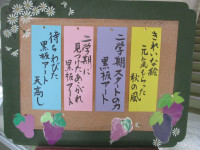 きれいな絵
元気をもらった
秋の風
二学期スタートの力
黒板アート
二学期に
見つけたあこがれ
黒板アート
待ちわびた
黒板アート
天高し